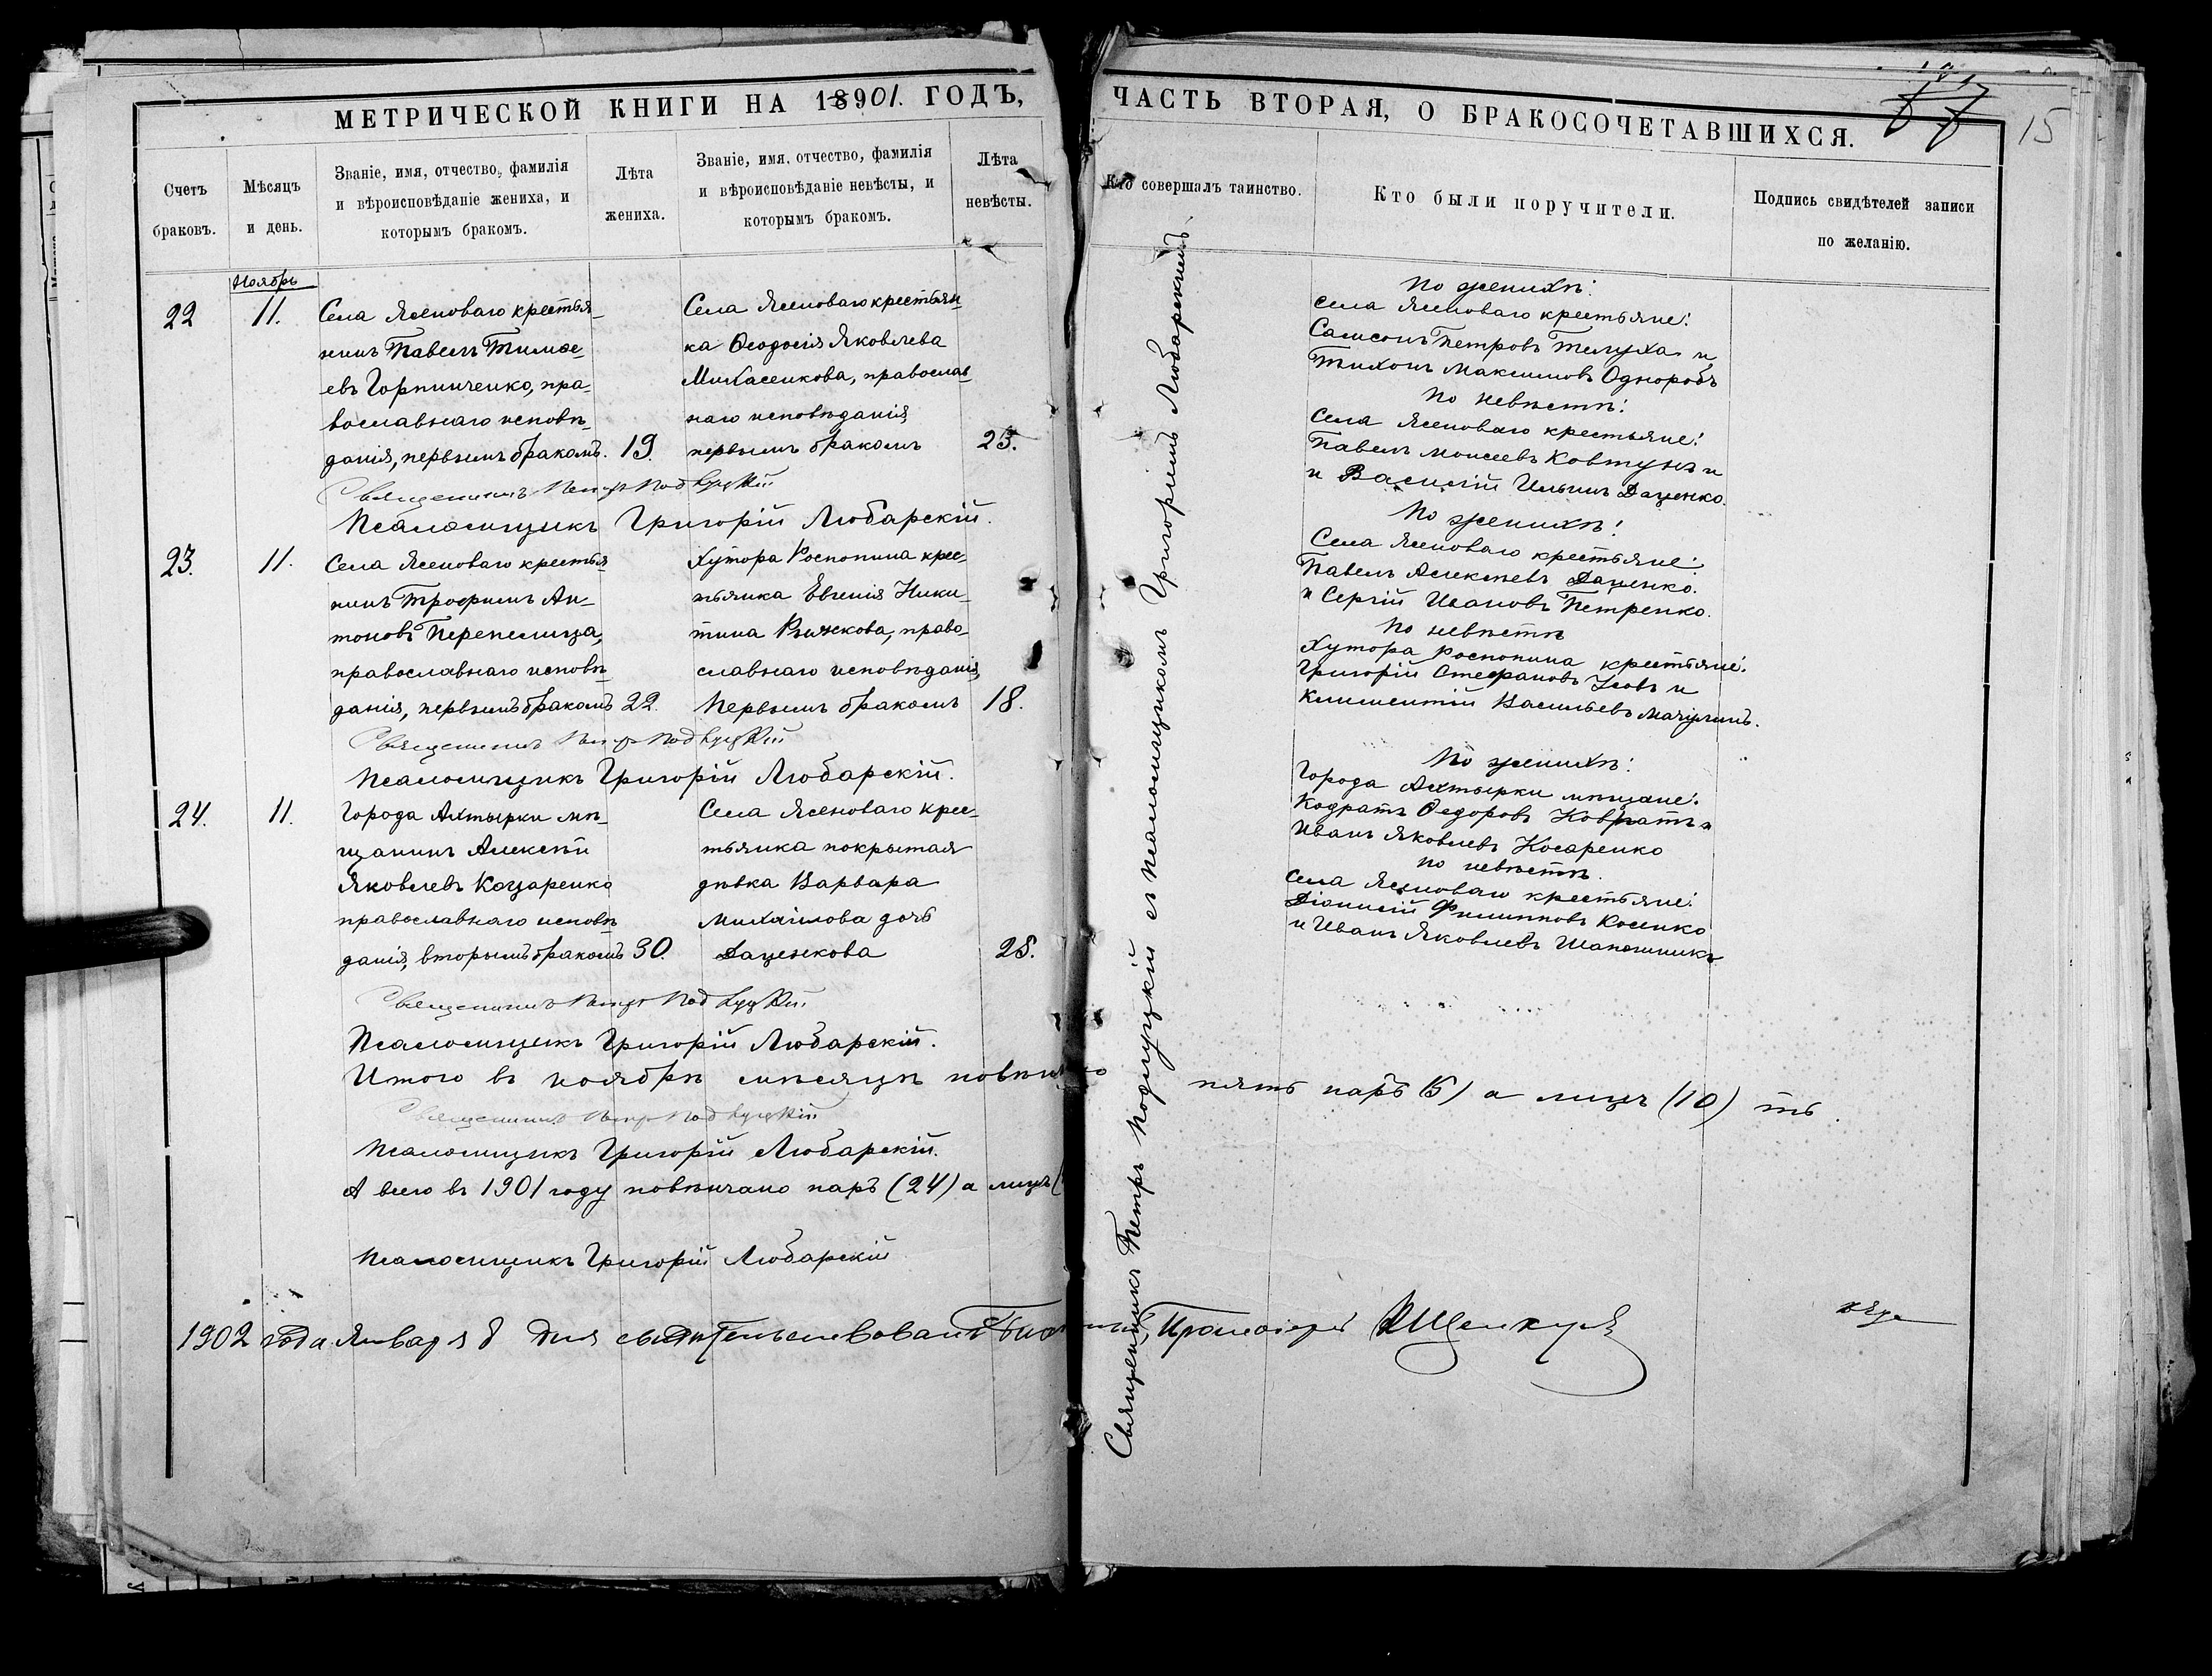 МЕТРИЧЕСКОЙ КНИГИ НА 18901. ГОДЪ,
Счетъ браковъ.
Мѣсяцъ и день.
Званіе, имя, отчество, фамилія и вѣроисповѣданіе жениха, и которымъ бракомъ.
Лѣта жениха.
Званіе, имя, отчество, фамилія и вѣроисповѣданіе невѣсты, и которымъ бракомъ.
Лѣта невѣсты.
Ноябрь
22
11.
Села Ясеноваго крестья-
нинъ Павелъ Тимоѳе-
евъ Горпинченко, пра-
вославнаго исповѣ-
данія, первымъ бракомъ.
19.
Села Ясеноваго крестьян-
ка Ѳеодосія Яковлева
Михасенкова, православ-
наго исповѣданія,
первымъ бракомъ
23.
Священникъ Петръ Подлуцкій
Псаломщикъ Григорій Любарскій.
23.
11.
Села Ясеноваго крестья-
нинъ Трофимъ Ан-
тоновъ Перепелица,
православнаго исповѣ-
данія, первымъ бракомъ
22.
Хутора Роспопина крес-
тьянка Евгенія Ники-
тина, право-
славнаго исповѣданія,
первымъ бракомъ
18.
Священникъ Петръ Подлуцкій
Псаломщикъ Григорій Любарскій.
24.
11.
Города Ахтырки мѣ-
щанинъ Алексѣй
Яковлевъ Коцаренко
православнаго исповѣ
данія, вторымъ бракомъ
30.
Села Ясеноваго крес-
тьянка покрытая
дѣвка Варвара
Михаилова дочь
Даценкова
28.
Священникъ Петръ Подлуцкій
Псаломщикъ Григорій Любарскій.
Итого въ ноябрѣ мѣсяцѣ повѣнчано
Священникъ Петръ Подлуцкій
Псаломщикъ Григорій Любарскій.
А всего въ 1901 году повѣнчано паръ (24) а лицъ (
Псаломщикъ Григорій Любарскій
1902 года Января 8 дня свидѣтельствовалъ
ЧАСТЬ ВТОРАЯ, О БРАКОСОЧЕТАВШИХСЯ.
15
Кто совершалъ таинство.
Кто были поручители.
Подпись свидѣтелей записи по желанію.
Священникъ Петръ Подлуцкій съ псаломщикомъ Григоріемъ Любарскимъ
По женихѣ:
села Ясеноваго крестьяне:
Самсонъ Петровъ Телуха и
Тихонъ Максимовъ Однороб
По невѣстѣ:
Села Ясеноваго крестьяне:
Павелъ Моисеевъ Ковтунъ и
и Василій Ильинъ Даценко.
По женихѣ:
Села Ясеноваго крестьяне:
Павелъ Алексѣевъ Даценко.
и Сергій Ивановъ Петренко.
По невѣстѣ
Хутора Роспопина крестьяне:
Григорій Стефановъ Усовъ и
Климентій Васильевъ Мачулинъ.
По женихѣ:
Города Ахтырки мѣщане:
Кодратъ Ѳедоровъ Ковратъ и
Иванъ Яковлевъ Косаренко
По невѣстѣ.
Села Ясеноваго крестьяне:
Діонисій Филипповъ Косенко
и Иванъ Яковлевъ Шапошник
пять паръ (5) а лицъ (10) ть.
Протоіерей